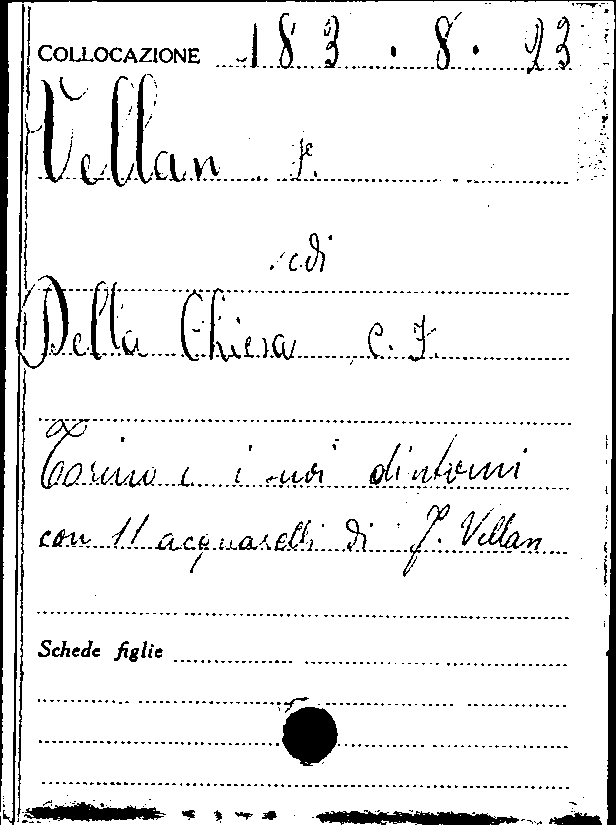 COLLOCAZIONE 183.8.23
Vellan F.
vedi
Della Chiesa C. F.
Torino e i suoi dintorni
con 11 acquarelli di F. Vellan
Schede figlie